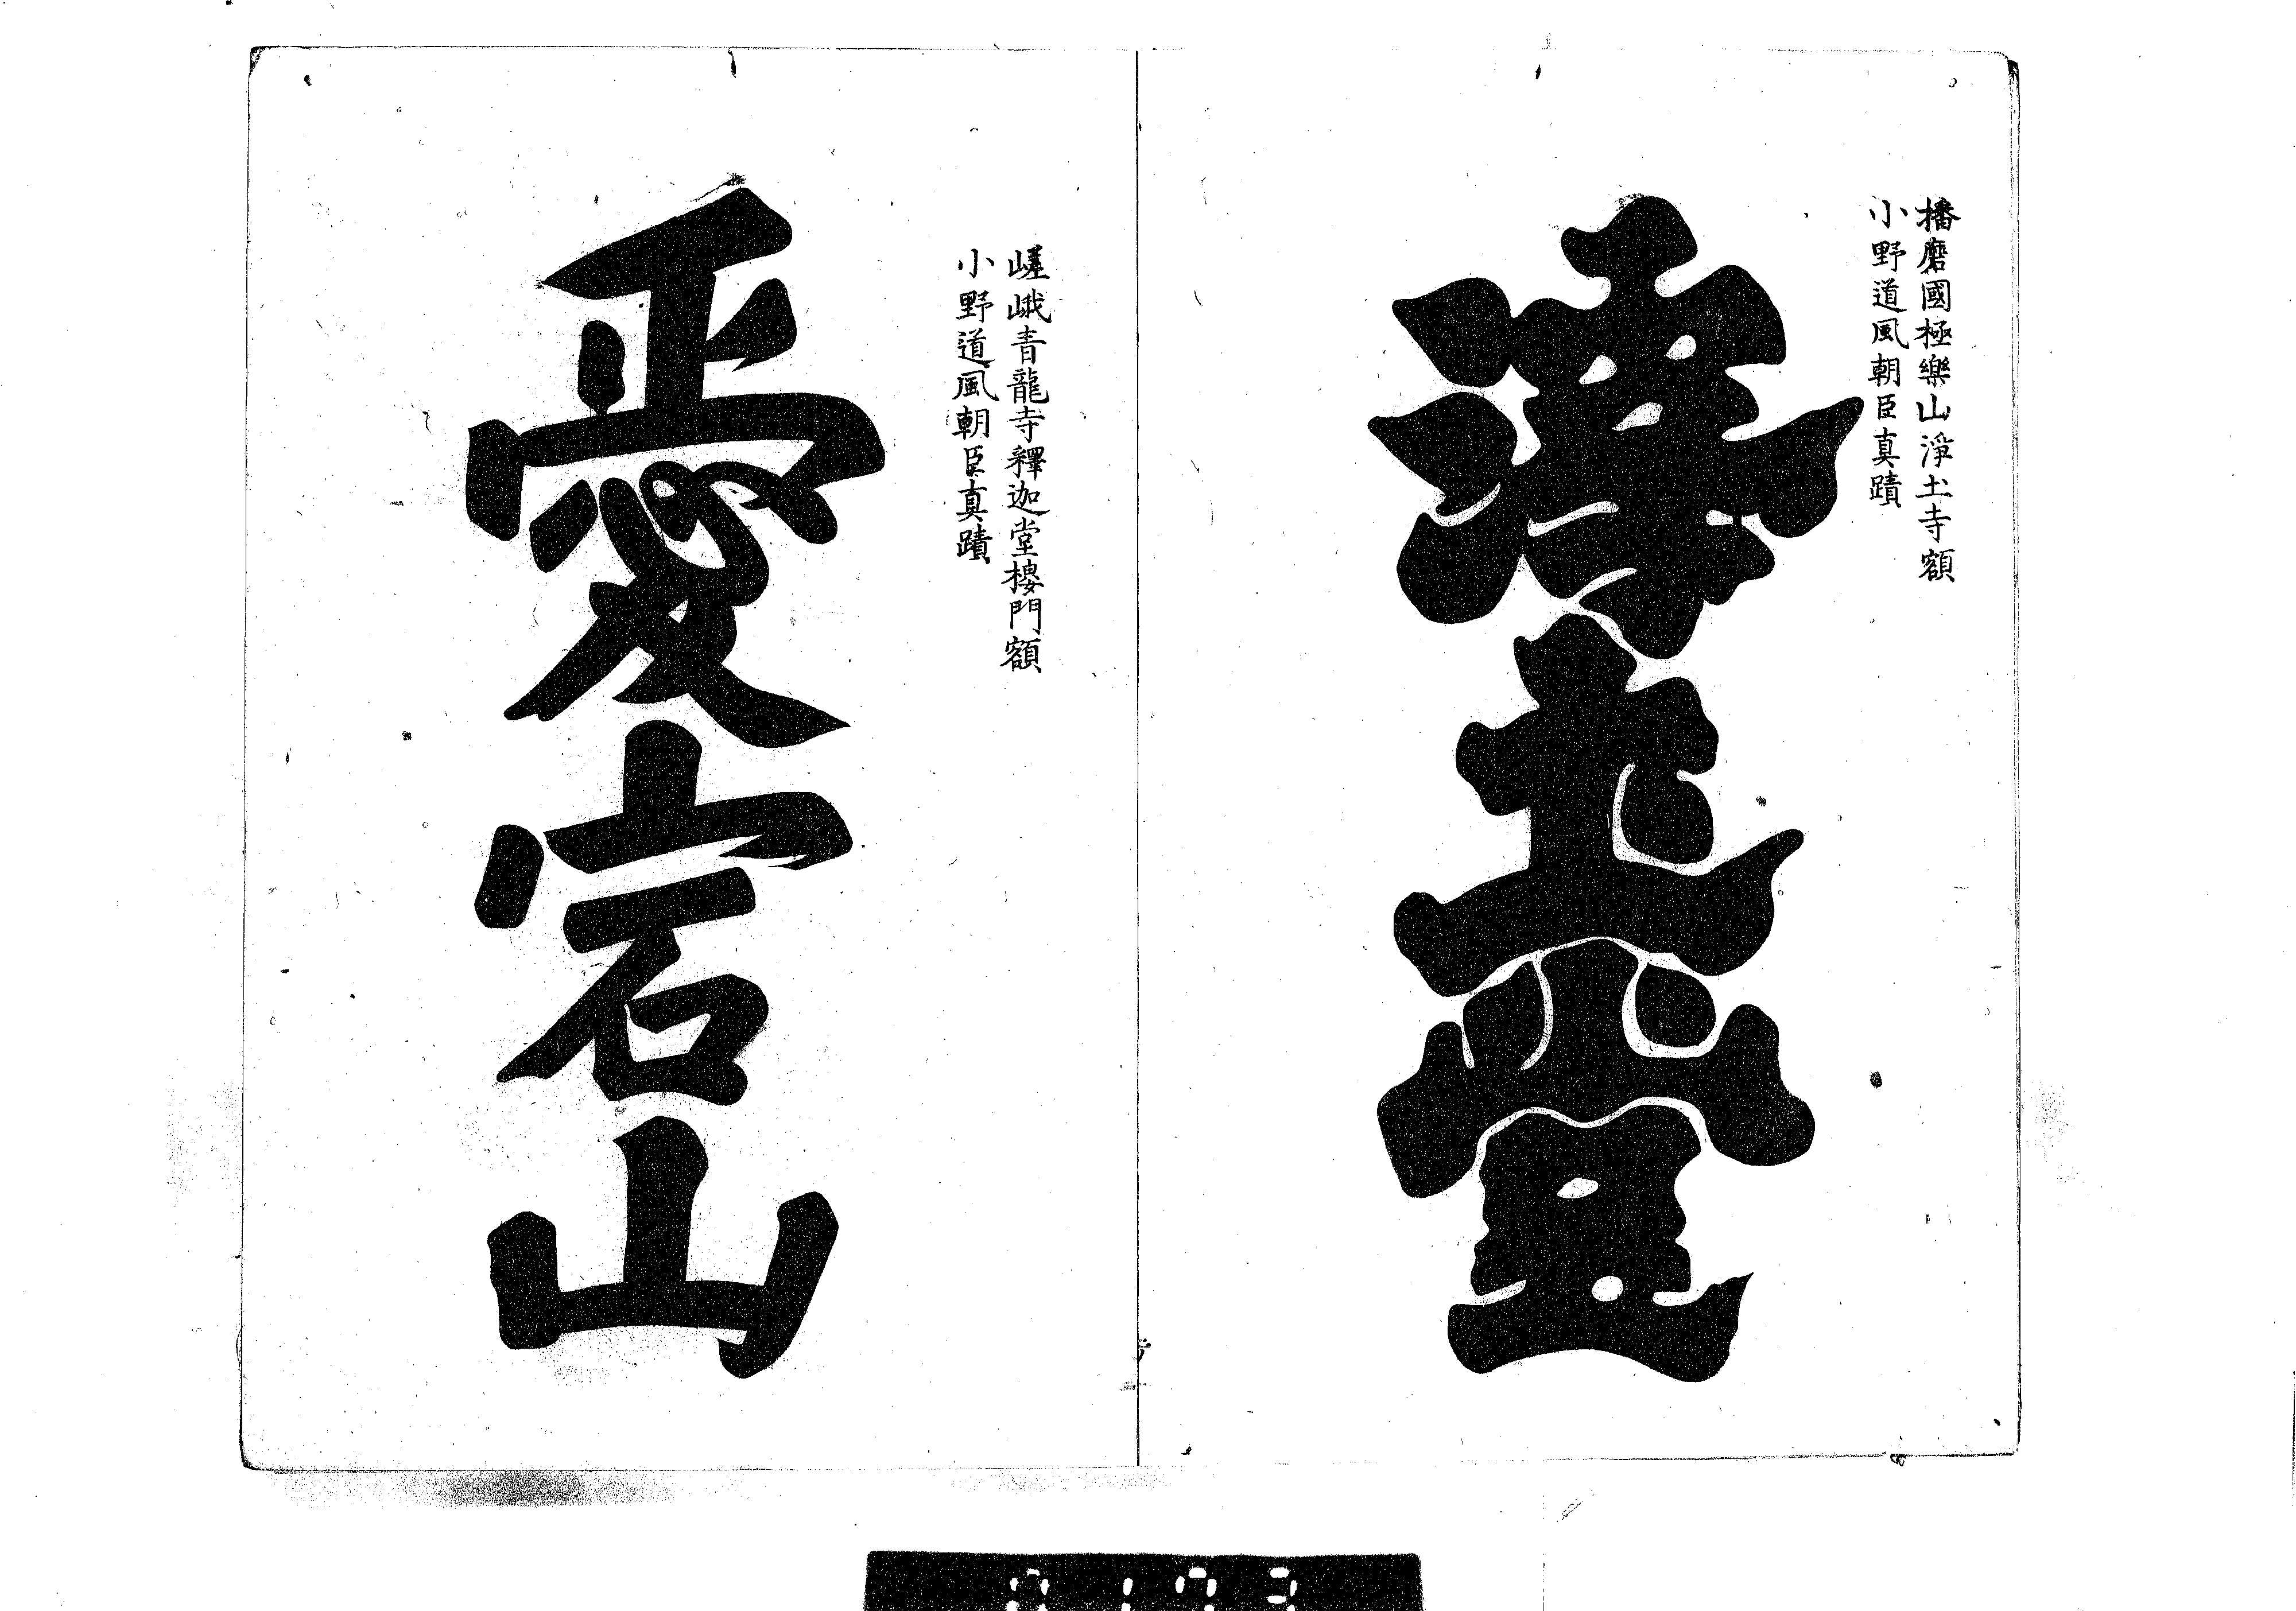 播磨國極樂山淨土寺額
小野道風朝臣真蹟
淨土堂
嵯峨青龍寺釋迦堂樓門額
小野道風朝臣真蹟
愛宕山